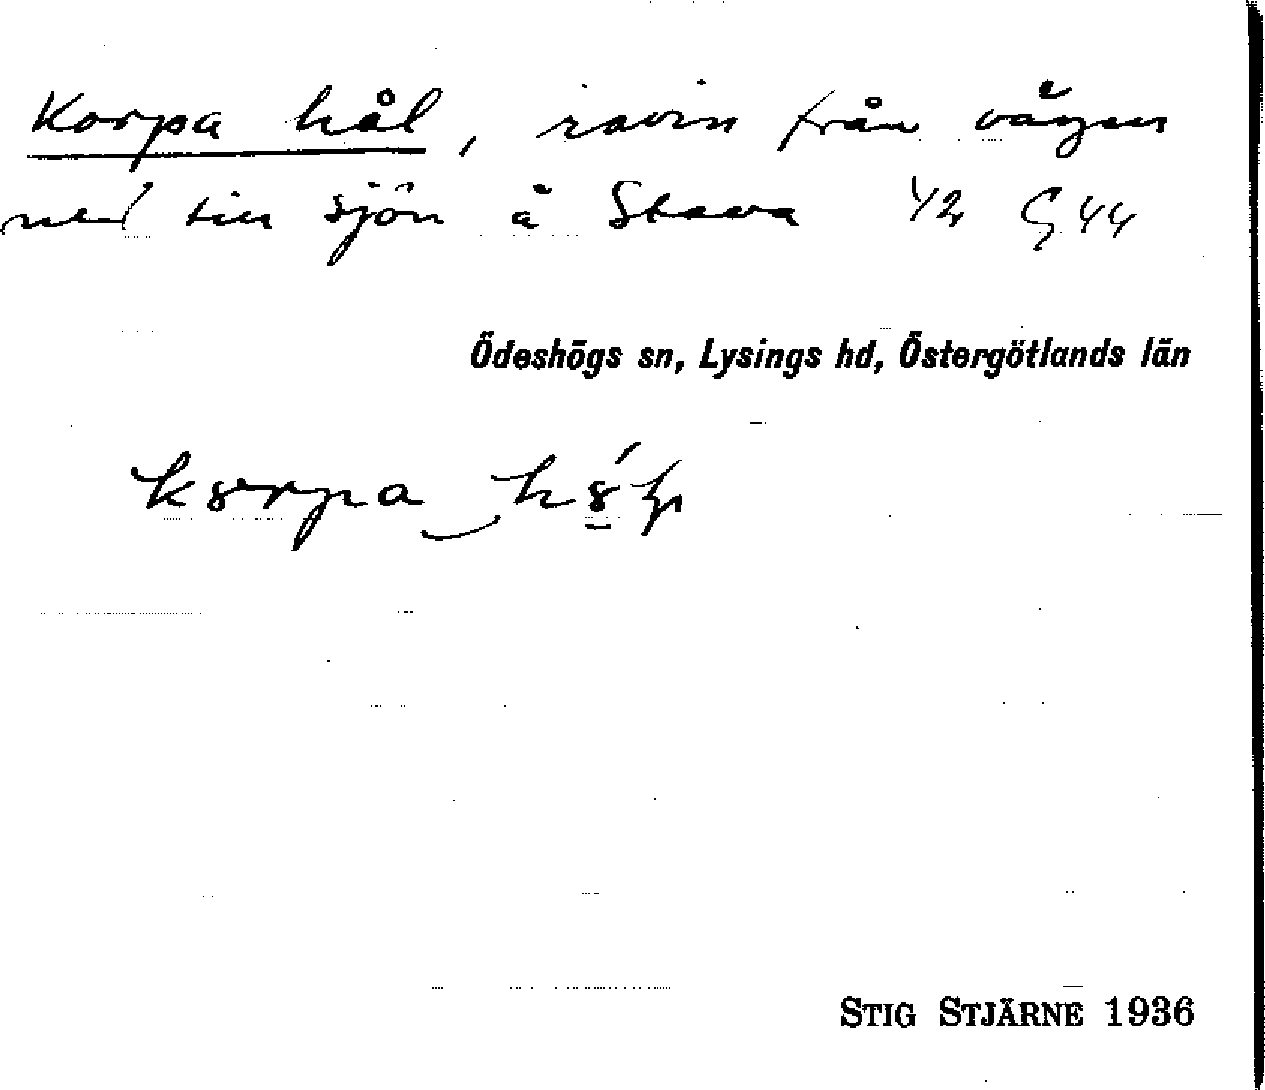 Korpa hål, ravin från vägen
ned till sjön å Stava 1/2 G 44
Ödeshögs sn, Lysings hd, Östergötlands län
korpa
STIG STJÄRNE 1936